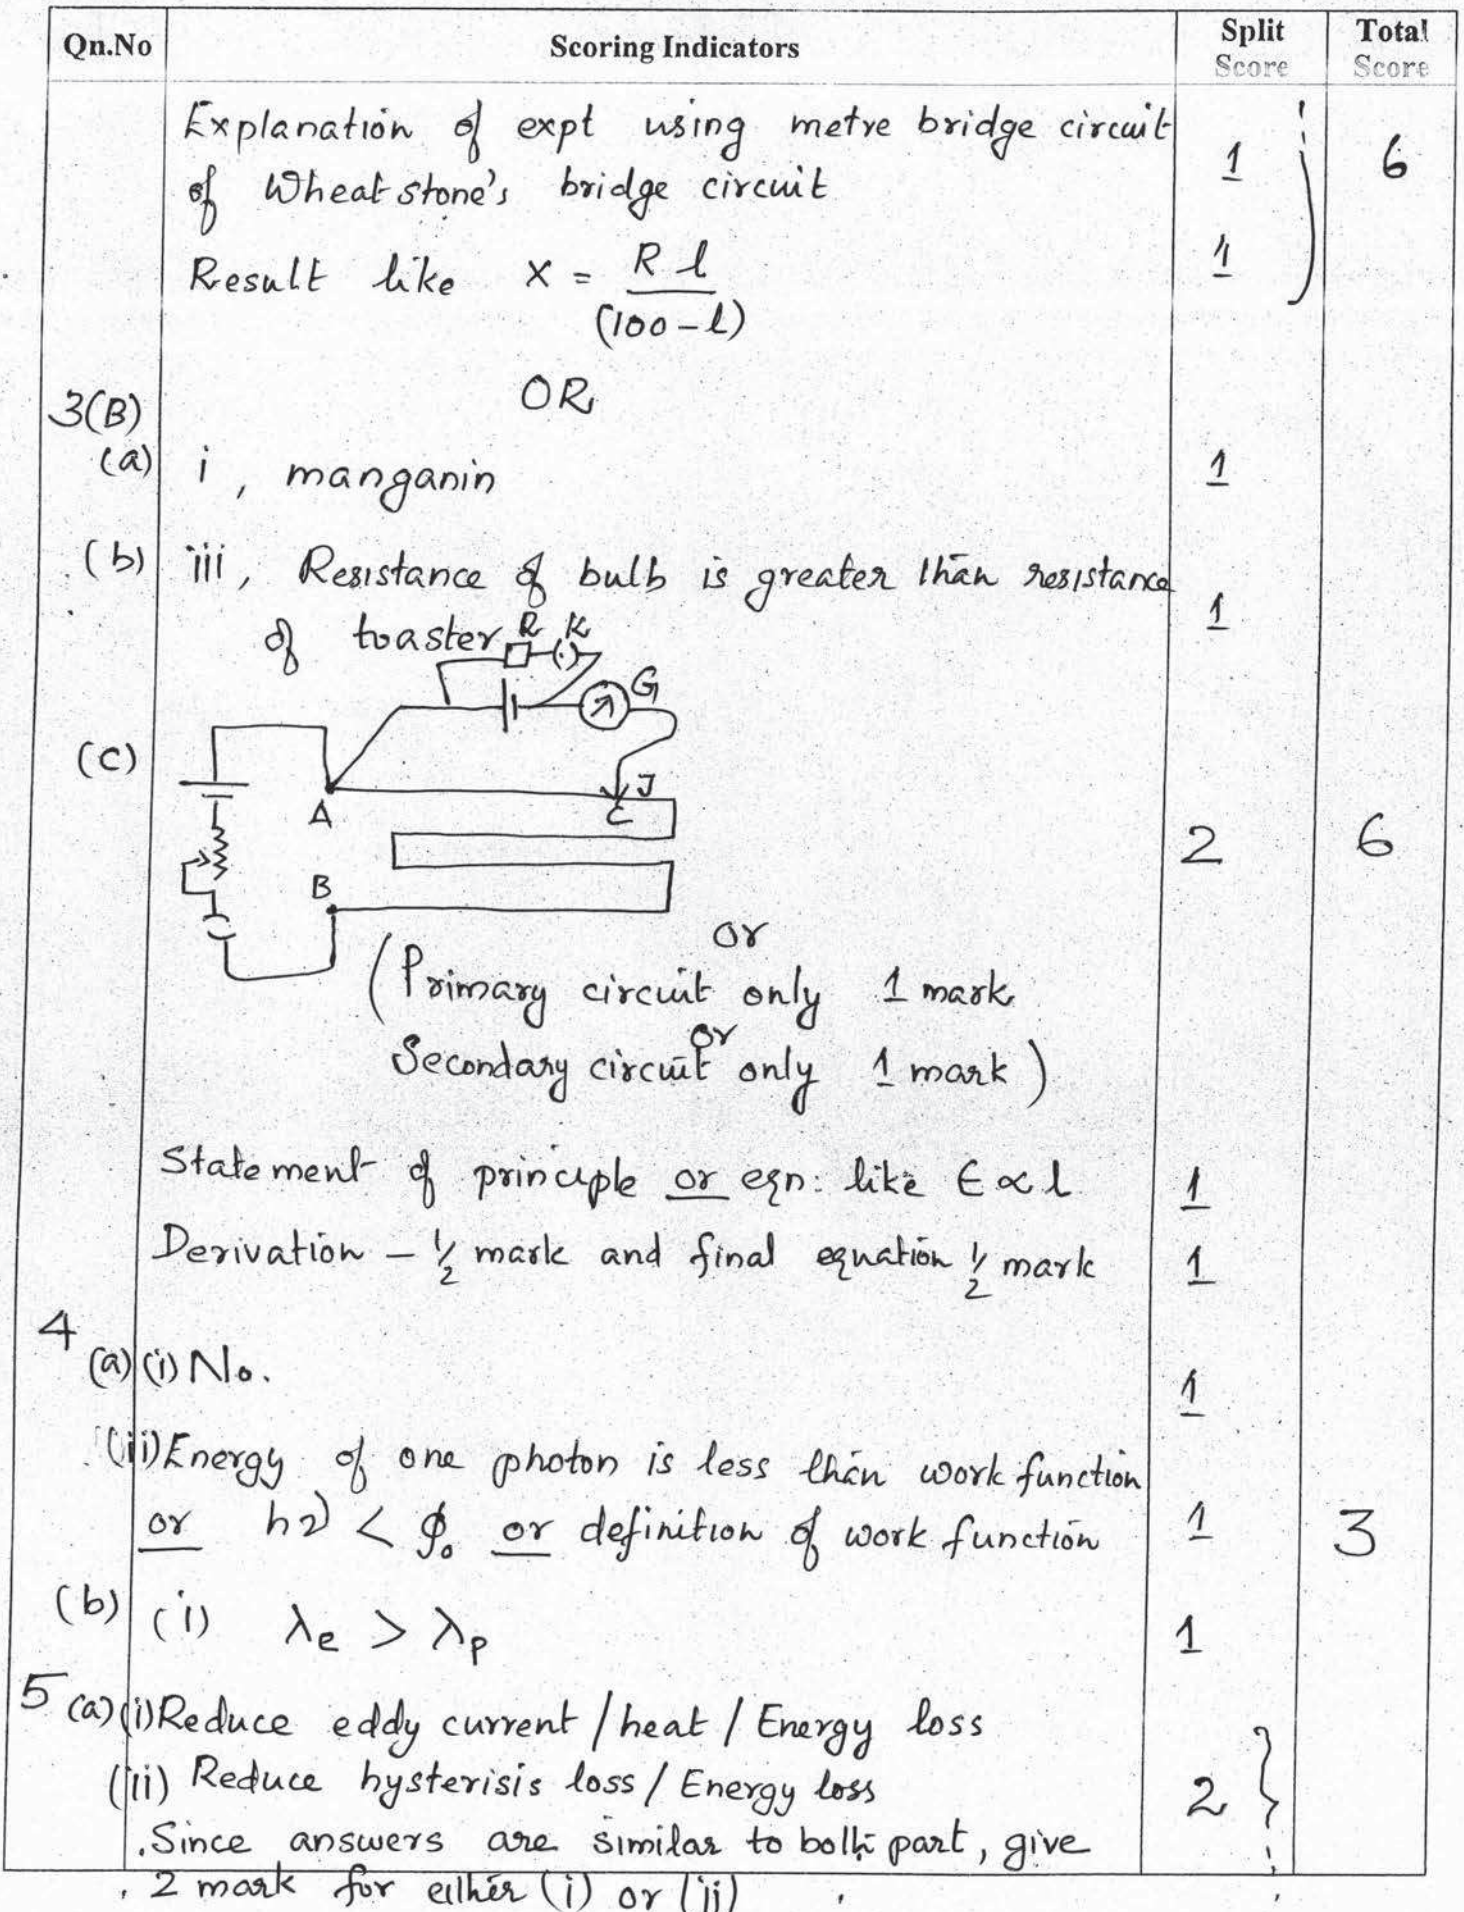 Qn.No Scoring Indicators Split Score Total Score
Explanation of expt using metre bridge circuit
of Wheatstone's bridge circuit 1 6
Result like X = R l / (100 – l) 1
OR
3(B)
(a) i, manganin 1
(b) iii, Resistance of bulb is greater than resistance
of toaster 1
R K
G
(c)
J
A C
2 6
B
or
(Primary circuit only 1 mark
or
Secondary circuit only 1 mark)
Statement of principle or eqn: like ϵ ∝ l 1
Derivation – ½ mark and final equation ½ mark 1
4
(a) (i) No. 1
(ii) Energy of one photon is less than work function
or hν < ϕ₀ or definition of work function 1 3
(b) (i) λe > λp 1
5 (a) (i) Reduce eddy current / heat / Energy loss
(ii) Reduce hysterisis loss / Energy loss 2
Since answers are similar to both part, give
2 mark for either (i) or (ii)